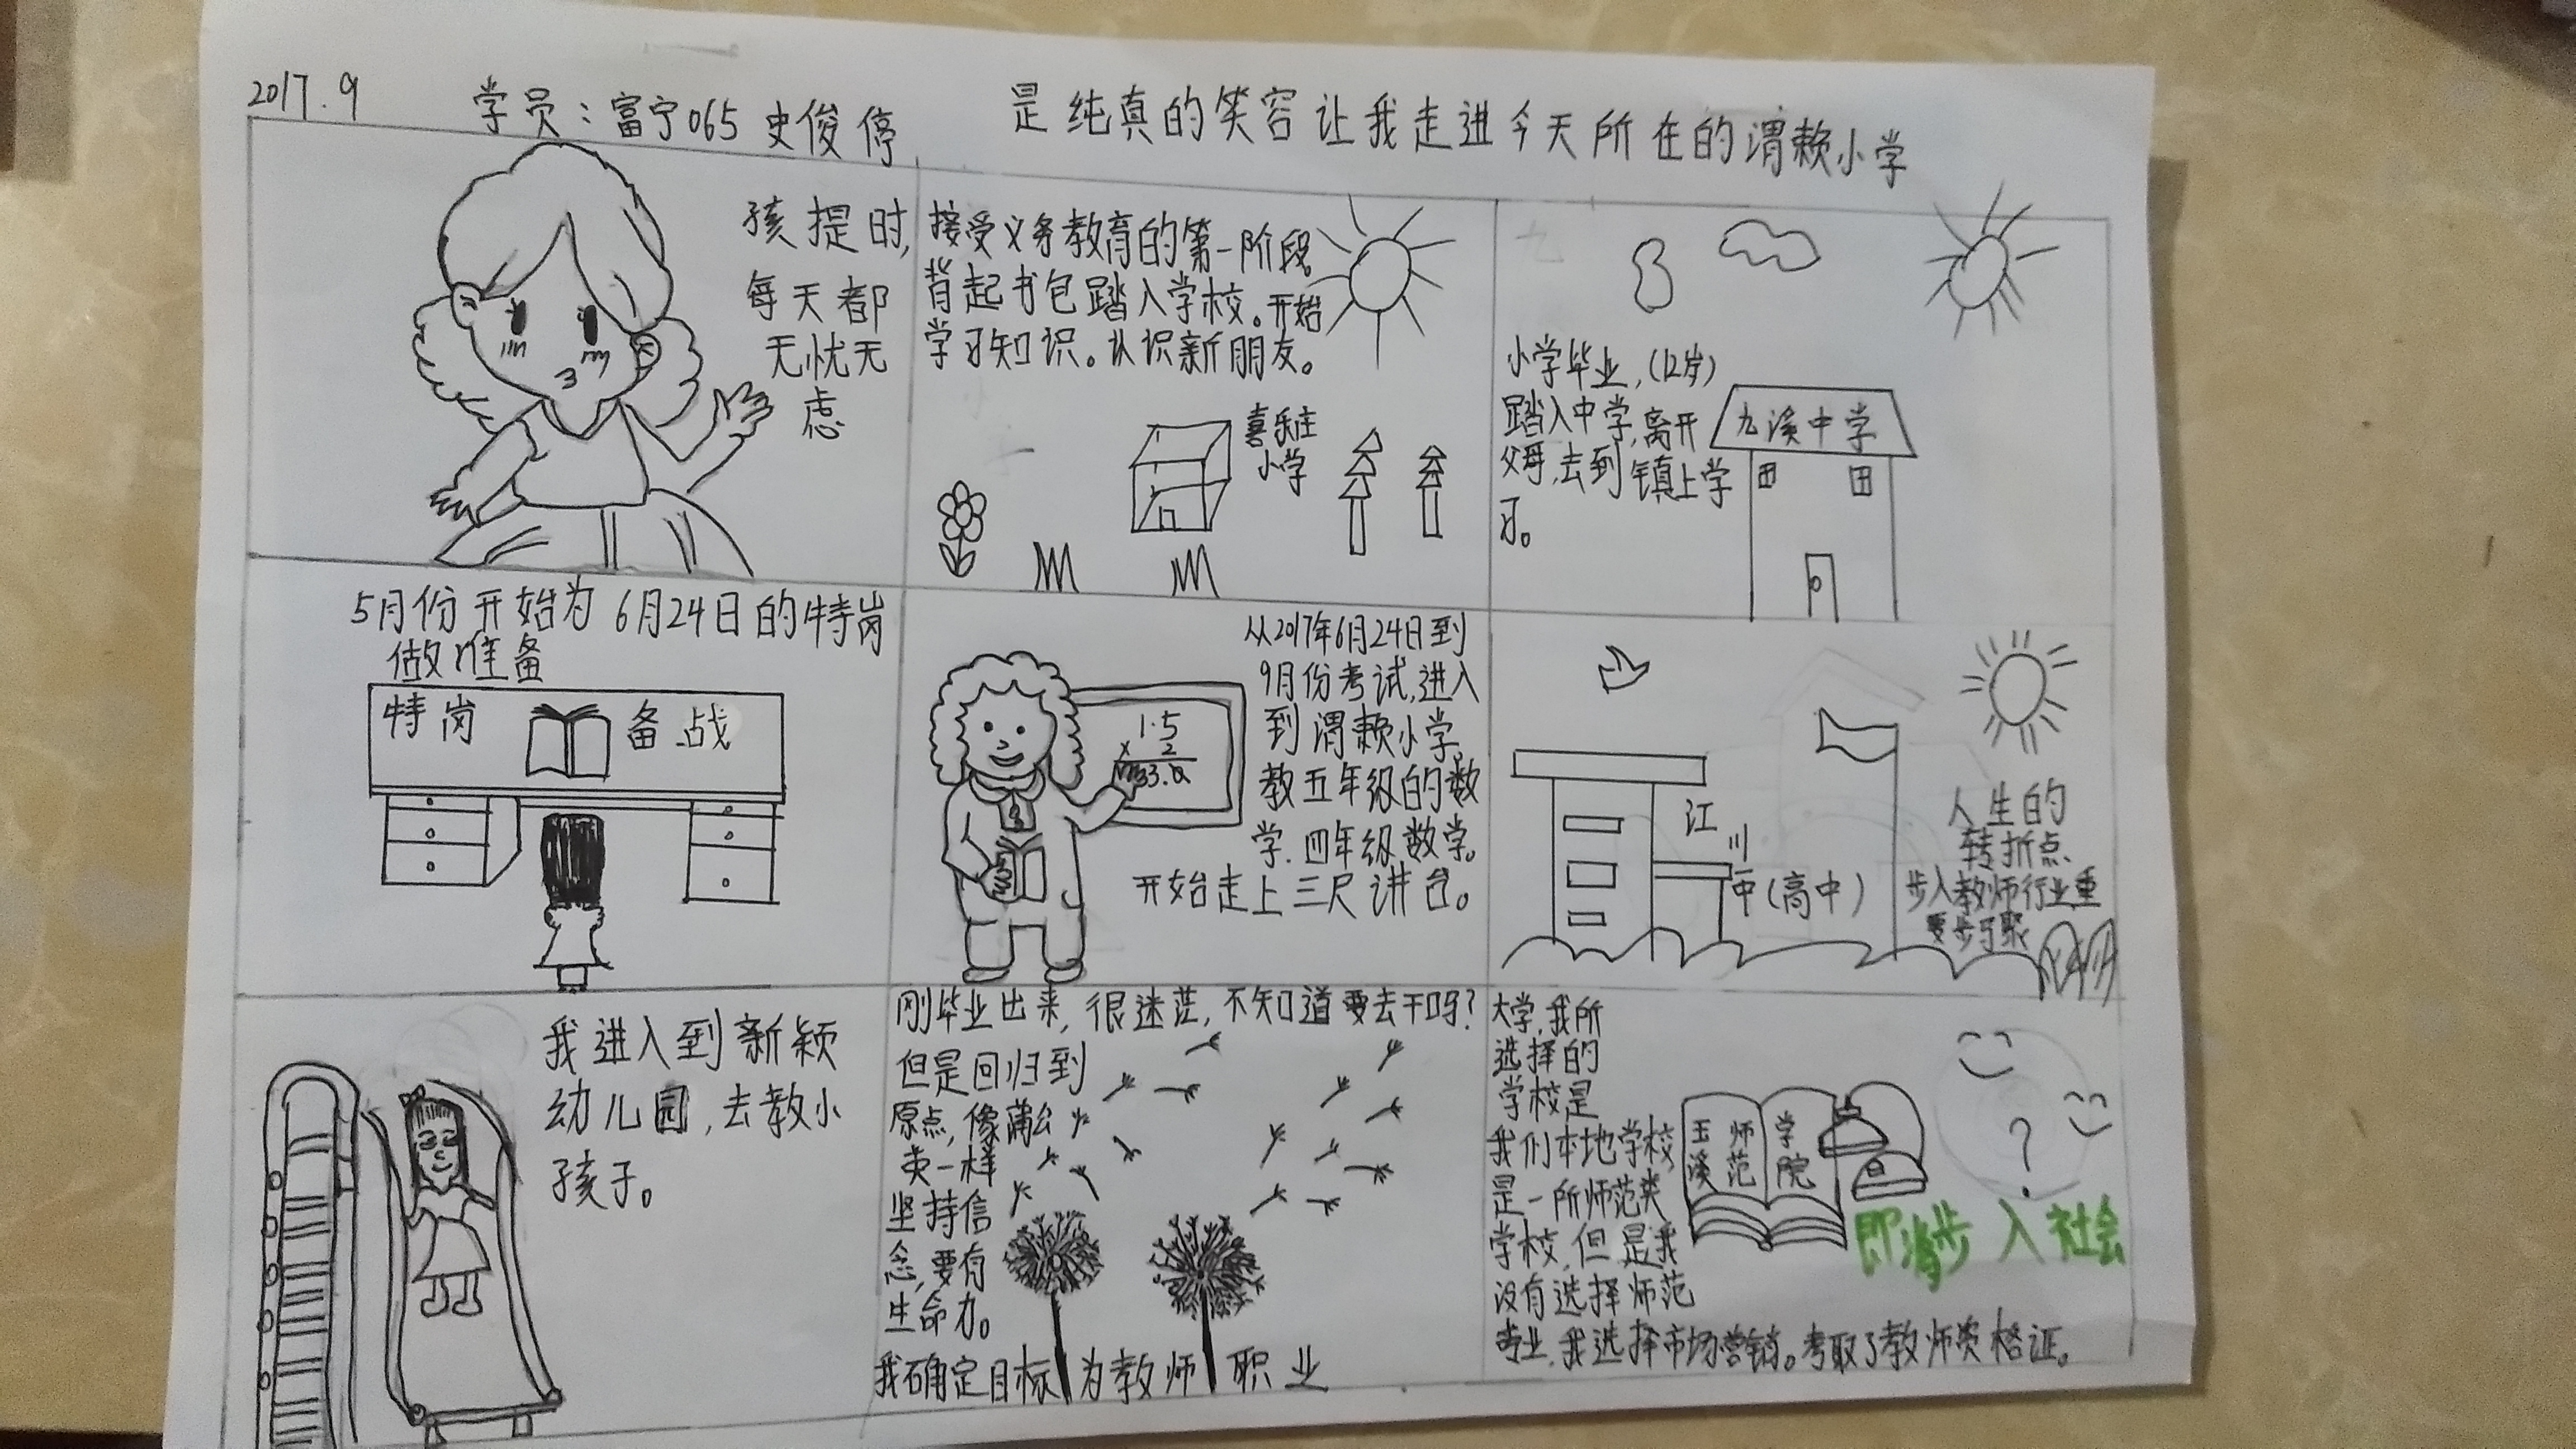 2017.9
学员：富宁065 史俊停
是纯真的笑容让我走进今天所在的渭赖小学
孩提时,
每天都
无忧无
虑
接受义务教育的第一阶段
背起书包踏入学校。开始
学习知识。认识新朋友。
喜乐庄
小学
小学毕业,(12岁)
踏入中学,离开
父母,去到镇上学
习。
九溪中学
5月份开始为6月24日的特岗
做准备
特岗 备战
从2017年6月24日到
9月份考试,进入
到渭赖小学,
教五年级的数
学.四年级数学。
开始走上三尺讲台。
1.5
× 2
33.0
江
川
中(高中)
人生的
转折点
步入教师行业重
要步骤
我进入到新颖
幼儿园,去教小
孩子。
刚毕业出来,很迷茫,不知道要去干吗?
但是回归到
原点,像蒲公
英一样
坚持信
念,要有
生命力。
我确定目标为教师职业
大学,我所
选择的
学校是
我们本地学校,
是一所师范类
学校,但是我
没有选择师范
专业,我选择市场营销。考取了教师资格证。
玉溪
师范
学院
?
即将步入社会